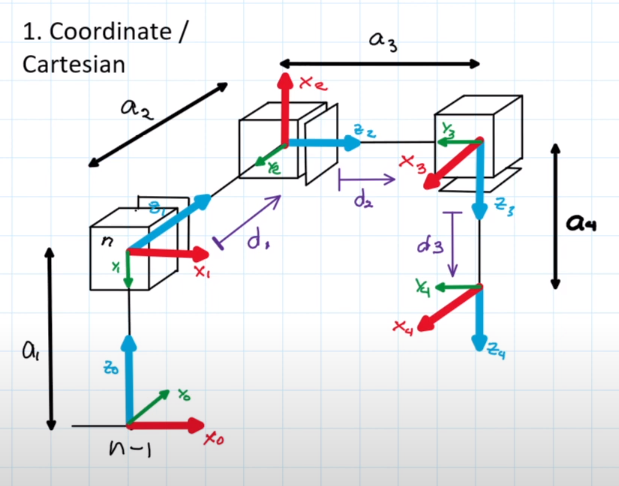 1. Coordinate /
Cartesian
a₃
a₂
x₂
z₂
y₂
y₃
x₃
z₃
d₂
n
z₁
d₁
x₁
y₁
a₄
d₃
y₄
x₄
z₄
a₁
z₀
y₀
x₀
n-1